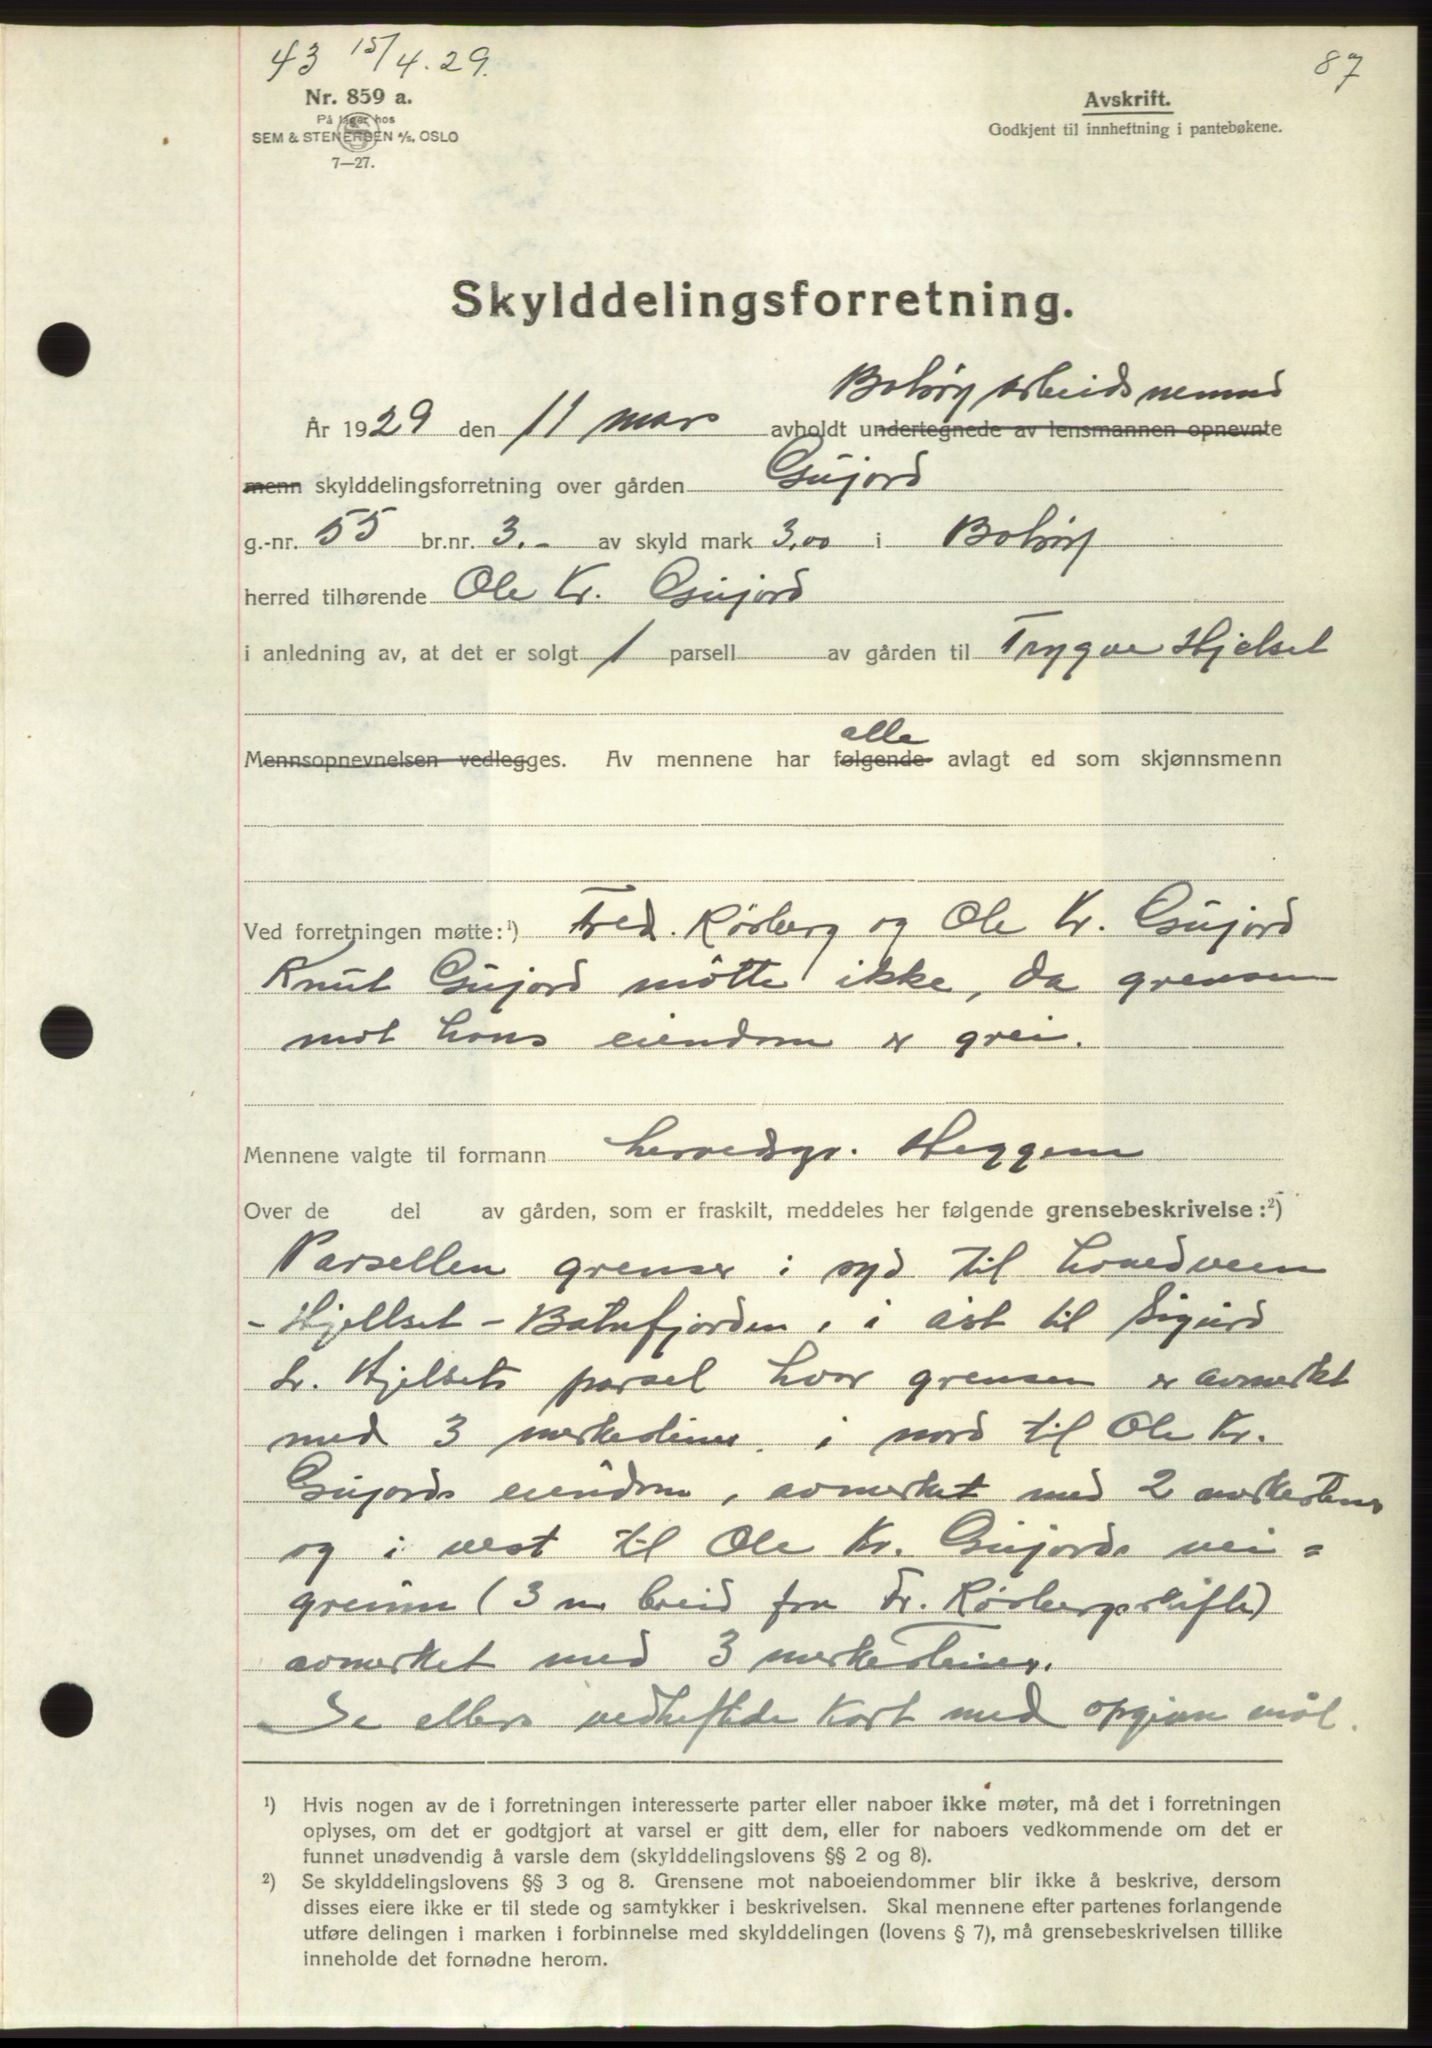 43 15/4.29.
87
Nr. 859 a.
På lager hos
SEM & STENERSEN A/S, OSLO
7—27.
Avskrift.
Godkjent til innheftning i pantebøkene.
Skylddelingsforretning.
Bolsøy arbeidsnemnd
År 1929 den 11 mars avholdt undertegnede av lensmannen opnevnte
menn skylddelingsforretning over gården Gujord
g.-nr. 55 br.nr. 3.- av skyld mark 3,00 i Bolsøy
herred tilhørende Ole Kr. Gujord
i anledning av, at det er solgt 1 parsell av gården til Trygve Hjelset
alle
Mennsopnevnelsen vedlegges. Av mennene har følgende avlagt ed som skjønnsmenn
Ved forretningen møtte: ¹) Fred. Rösberg og Ole Kr. Gujord
Knut Gujord mötte ikke, da grensen
mot hans eiendom er grei.
Mennene valgte til formann herredsgr. Heggem
Over de del av gården, som er fraskilt, meddeles her følgende grensebeskrivelse: ²)
Parsellen grenser i syd til hovedveien
- Hjellset - Batnfjorden, i öst til Sigurd
Hjelsets parsel hvor grensen er avmerket
med 3 merkestener, i nord til Ole Kr.
Gujords eiendom, avmerket med 2 merkestener
og i vest til Ole Kr. Gujords vei=
grunn (3 m breid fra Fr. Rösbergs skifte)
avmerket med 3 merkestener.
Se ellers vedheftede kart med opgivne mål.
¹) Hvis nogen av de i forretningen interesserte parter eller naboer ikke møter, må det i forretningen
oplyses, om det er godtgjort at varsel er gitt dem, eller for naboers vedkommende om det er
funnet unødvendig å varsle dem (skylddelingslovens §§ 2 og 8).
²) Se skylddelingslovens §§ 3 og 8. Grensene mot naboeiendommer blir ikke å beskrive, dersom
disses eiere ikke er til stede og samtykker i beskrivelsen. Skal mennene efter partenes forlangende
utføre delingen i marken i forbinnelse med skylddelingen (lovens § 7), må grensebeskrivelsen tillike
inneholde det fornødne herom.